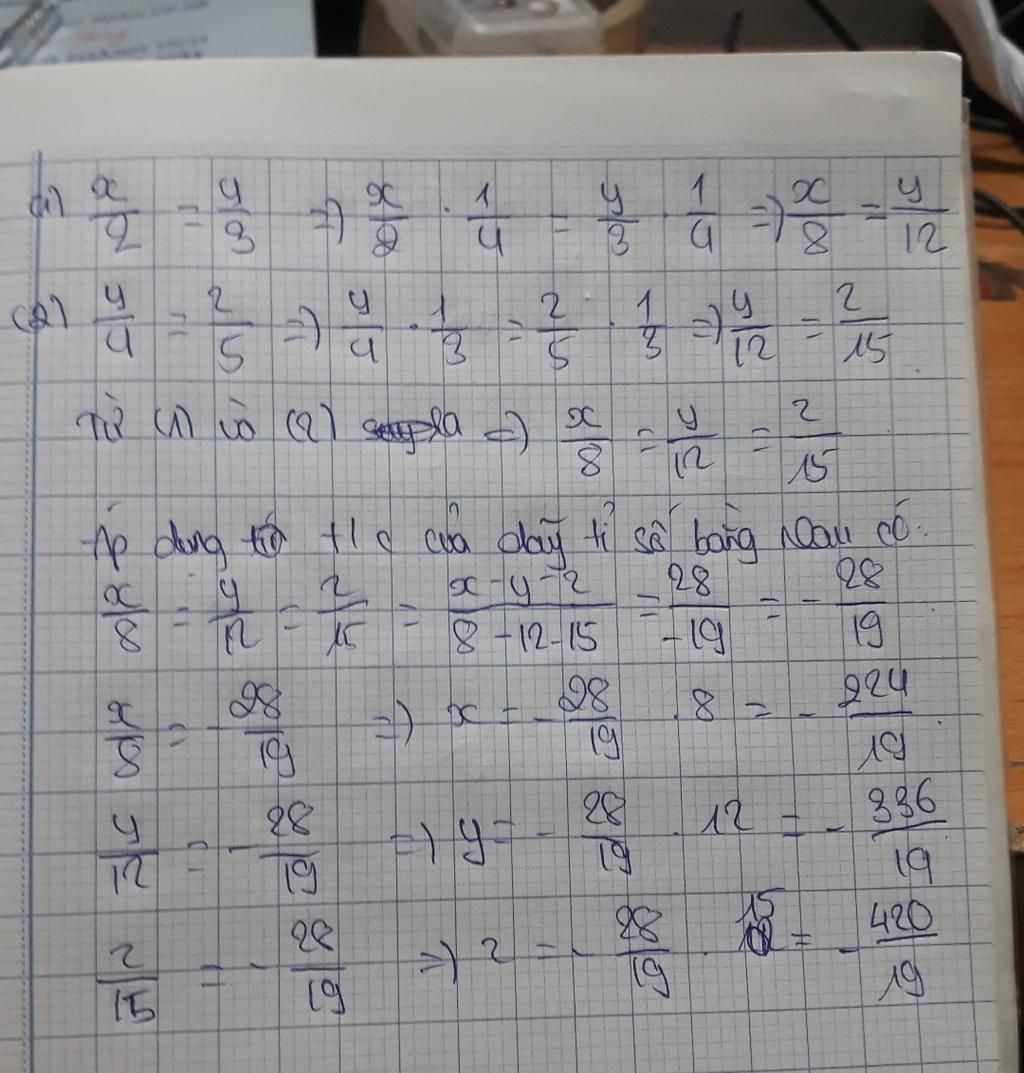 (1) x/2 = y/3 => x/2 . 1/4 = y/3 . 1/4 => x/8 = y/12
(2) y/4 = z/5 => y/4 . 1/3 = z/5 . 1/3 => y/12 = z/15
Từ (1) và (2) => x/8 = y/12 = z/15
Áp dụng t/c của dãy tỉ số bằng nhau có:
x/8 = y/12 = z/15 = x-y-z/8-12-15 = 28/-19 = -28/19
x/8 = -28/19 => x = -28/19 . 8 = -224/19
y/12 = -28/19 => y = -28/19 . 12 = -336/19
z/15 = -28/19 => z = -28/19 . 15 = -420/19